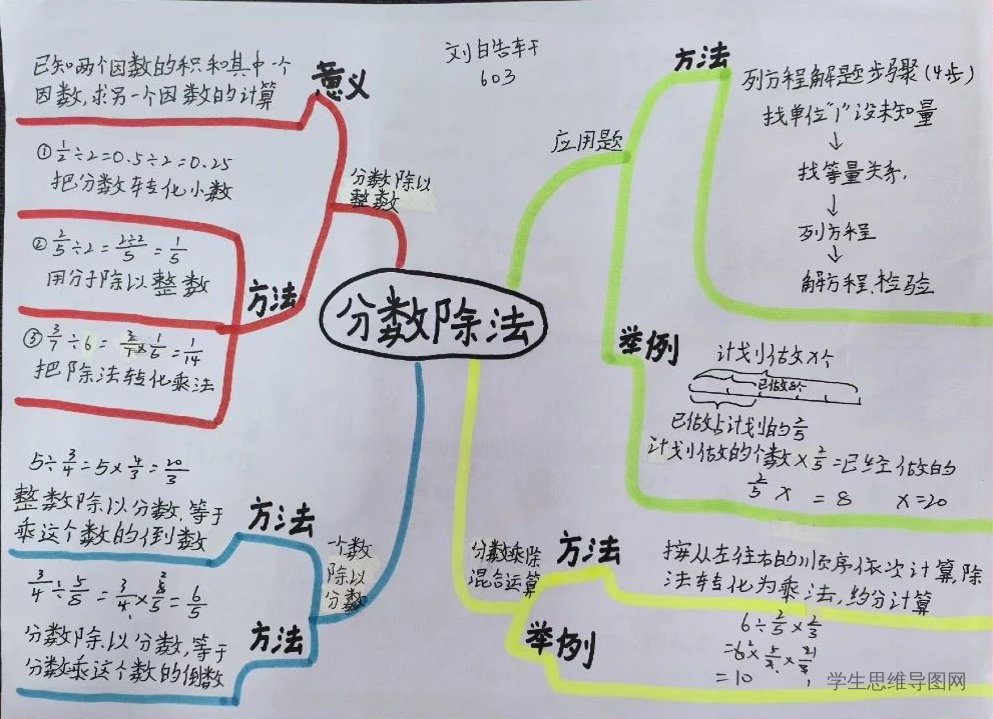 刘皓轩
603
分数除法
分数除以
整数
意义
已知两个因数的积和其中一个
因数,求另一个因数的计算
方法
①1/2÷2=0.5÷2=0.25
把分数转化小数
②2/5÷2=2÷2/5=1/5
用分子除以整数
③3/7÷6=3/7×1/6=1/14
把除法转化乘法
一个数
除以
分数
方法
5÷3/4=5×4/3=20/3
整数除以分数,等于
乘这个数的倒数
方法
3/4÷5/8=3/4×8/5=6/5
分数除以分数,等于
分数乘这个数的倒数
应用题
方法
列方程解题步骤(4步)
找单位"1"设未知量
↓
找等量关系.
↓
列方程
↓
解方程.检验
举例
计划做x个
已做8个
已做占计划的2/5
计划做的个数×2/5=已经做的
2/5x=8 x=20
分数乘除
混合运算
方法
按从左往右的顺序依次计算,除
法转化为乘法,约分计算
举例
6÷2/5×2/3
=6×5/2×2/3
=10
学生思维导图网